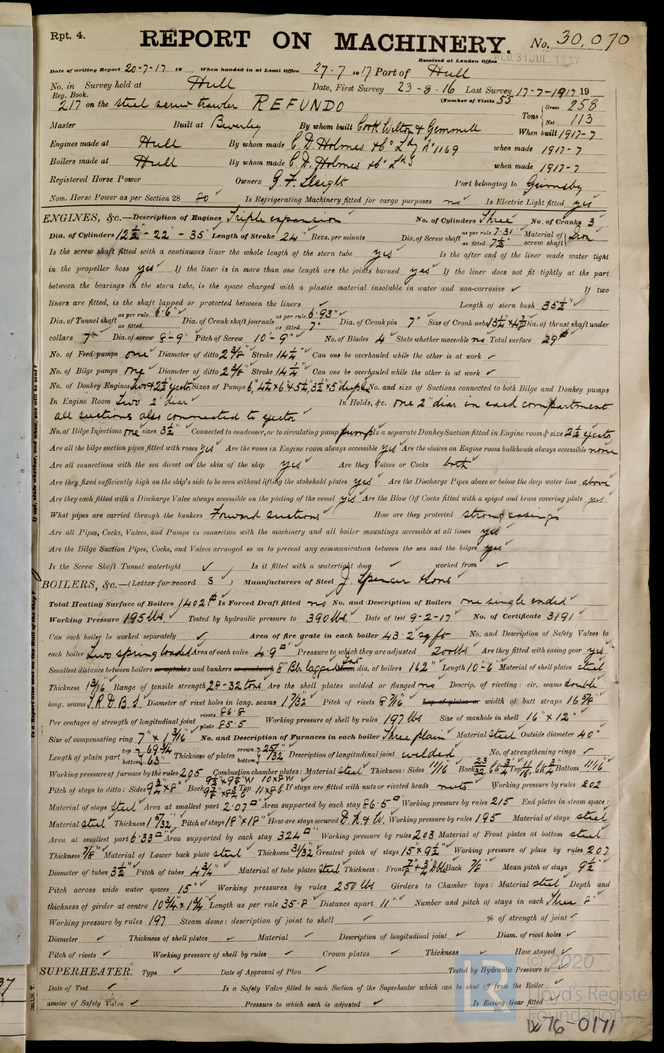 Rpt. 4.
REPORT ON MACHINERY.
No. 30,070
Received at London Office
WED. 31 JUL 1917
Date of writing Report 20-7-17 19 When handed in at Local Office 27-7-1917 Port of Hull
No. in Survey held at Hull Date, First Survey 23-8-16 Last Survey 17-7-1917 19
Reg. Book.
(Number of Visits 55
217 on the steel screw trawler REFUNDO
Tons Gross 258
Net 113
Master Built at Beverley By whom built Cook Welton & Gemmell When built 1917-7
Engines made at Hull By whom made C. D. Holmes & Co Ltd No 1169 when made 1917-7
Boilers made at Hull By whom made C. D. Holmes & Co Ltd when made 1917-7
Registered Horse Power Owners G. F. Sleight Port belonging to Grimsby
Nom. Horse Power as per Section 28 80 Is Refrigerating Machinery fitted for cargo purposes no Is Electric Light fitted yes
ENGINES, &c.—Description of Engines Triple expansion No. of Cylinders Three No. of Cranks 3
Dia. of Cylinders 12½-22-35 Length of Stroke 24" Revs. per minute Dia. of Screw shaft as per rule 7.31 as fitted 7½ Material of screw shaft Iron
Is the screw shaft fitted with a continuous liner the whole length of the stern tube yes Is the after end of the liner made water tight
in the propeller boss yes If the liner is in more than one length are the joints burned yes If the liner does not fit tightly at the part
between the bearings in the stern tube, is the space charged with a plastic material insoluble in water and non-corrosive If two
liners are fitted, is the shaft lapped or protected between the liners Length of stern bush 35½"
Dia. of Tunnel shaft as per rule 6.6" as fitted Dia. of Crank shaft journals as per rule 6.93" as fitted 7" Dia. of Crank pin 7" Size of Crank webs Dia. of thrust shaft under
collars 7" Dia. of screw 8'-9" Pitch of Screw 10'-9" No. of Blades 4 State whether moveable no Total surface 29
No. of Feed pumps one Diameter of ditto 2⅝ Stroke 14½" Can one be overhauled while the other is at work
No. of Bilge pumps one Diameter of ditto 2⅝ Stroke 14½" Can one be overhauled while the other is at work
No. of Donkey Engines Sizes of Pumps No. and size of Suctions connected to both Bilge and Donkey pumps
In Engine Room Two 2" diar In Holds, &c. one 2" diar in each compartment
all suctions also connected to ejector
No. of Bilge Injections one sizes 3½" Connected to condenser, or to circulating pump pump Is a separate Donkey Suction fitted in Engine room & size 2½ ejector
Are all the bilge suction pipes fitted with roses yes Are the roses in Engine room always accessible yes Are the sluices on Engine room bulkheads always accessible none
Are all connections with the sea direct on the skin of the ship yes Are they Valves or Cocks both
Are they fixed sufficiently high on the ship's side to be seen without lifting the stokehold plates yes Are the Discharge Pipes above or below the deep water line above
Are they each fitted with a Discharge Valve always accessible on the plating of the vessel yes Are the Blow Off Cocks fitted with a spigot and brass covering plate yes
What pipes are carried through the bunkers Forward suctions How are they protected strong casings
Are all Pipes, Cocks, Valves, and Pumps in connection with the machinery and all boiler mountings accessible at all times yes
Are the Bilge Suction Pipes, Cocks, and Valves arranged so as to prevent any communication between the sea and the bilges yes
Is the Screw Shaft Tunnel watertight Is it fitted with a watertight door worked from
BOILERS, &c.—(Letter for record S) Manufacturers of Steel J. Spencer & Sons
Total Heating Surface of Boilers 1402 Is Forced Draft fitted no No. and Description of Boilers one single ended
Working Pressure 195 lbs. Tested by hydraulic pressure to 390 lbs. Date of test 9-2-17 No. of Certificate 3191
Can each boiler be worked separately Area of fire grate in each boiler 43.2 sq ft No. and Description of Safety Valves to
each boiler Two spring loaded Area of each valve 4.9 Pressure to which they are adjusted 200 lbs Are they fitted with easing gear yes
Smallest distance between boilers or uptakes and bunkers or woodwork 8" dia. of boilers 162" Length 10-6 Material of shell plates steel
Thickness 1 3/16 Range of tensile strength 28-32 tons Are the shell plates welded or flanged no Descrip. of riveting: cir. seams double
long. seams T.R.D.B.S. Diameter of rivet holes in long. seams 1 7/32" Pitch of rivets 8 7/16 Lap of plates or width of butt straps
Per centages of strength of longitudinal joint rivets 86.8 plate 85.5 Working pressure of shell by rules 197 lbs Size of manhole in shell 16" x 12"
Size of compensating ring No. and Description of Furnaces in each boiler Three plain Material steel Outside diameter 40"
Length of plain part top 69¾ bottom 63 Thickness of plates crown bottom Description of longitudinal joint welded No. of strengthening rings
Working pressure of furnace by the rules 205 Combustion chamber plates: Material steel Thickness: Sides 11/16 Back Top Bottom 11/16
Pitch of stays to ditto: Sides Back Top If stays are fitted with nuts or riveted heads nuts Working pressure by rules 202
Material of stays steel Area at smallest part 2.07 Area supported by each stay 86.5 Working pressure by rules 215 End plates in steam space:
Material steel Thickness Pitch of stays 18 x 18 How are stays secured D.N. & W. Working pressure by rules 195 Material of stays steel
Area at smallest part 6.33 Area supported by each stay 324 Working pressure by rules 203 Material of Front plates at bottom steel
Thickness ⅞ Material of Lower back plate steel Thickness Greatest pitch of stays 15 x 9½ Working pressure of plate by rules 207
Diameter of tubes 3½ Pitch of tubes 4¾ Material of tube plates steel Thickness: Front Back ⅞ Mean pitch of stays 9½
Pitch across wide water spaces 15" Working pressures by rules 250 lbs Girders to Chamber tops: Material steel Depth and
thickness of girder at centre Length as per rule 35.8 Distance apart 11" Number and pitch of stays in each Three 8"
Working pressure by rules 197 Steam dome: description of joint to shell % of strength of joint
Diameter Thickness of shell plates Material Description of longitudinal joint Diam. of rivet holes
Pitch of rivets Working pressure of shell by rules Crown plates Thickness How stayed
SUPERHEATER. Type Date of Approval of Plan Tested by Hydraulic Pressure to
Date of Test Is a Safety Valve fitted to each Section of the Superheater which can be shut off from the Boiler
ameter of Safety Valve Pressure to which each is adjusted Is Easing Gear fitted
© 2020
Lloyd's Register
Foundation
W76-0171